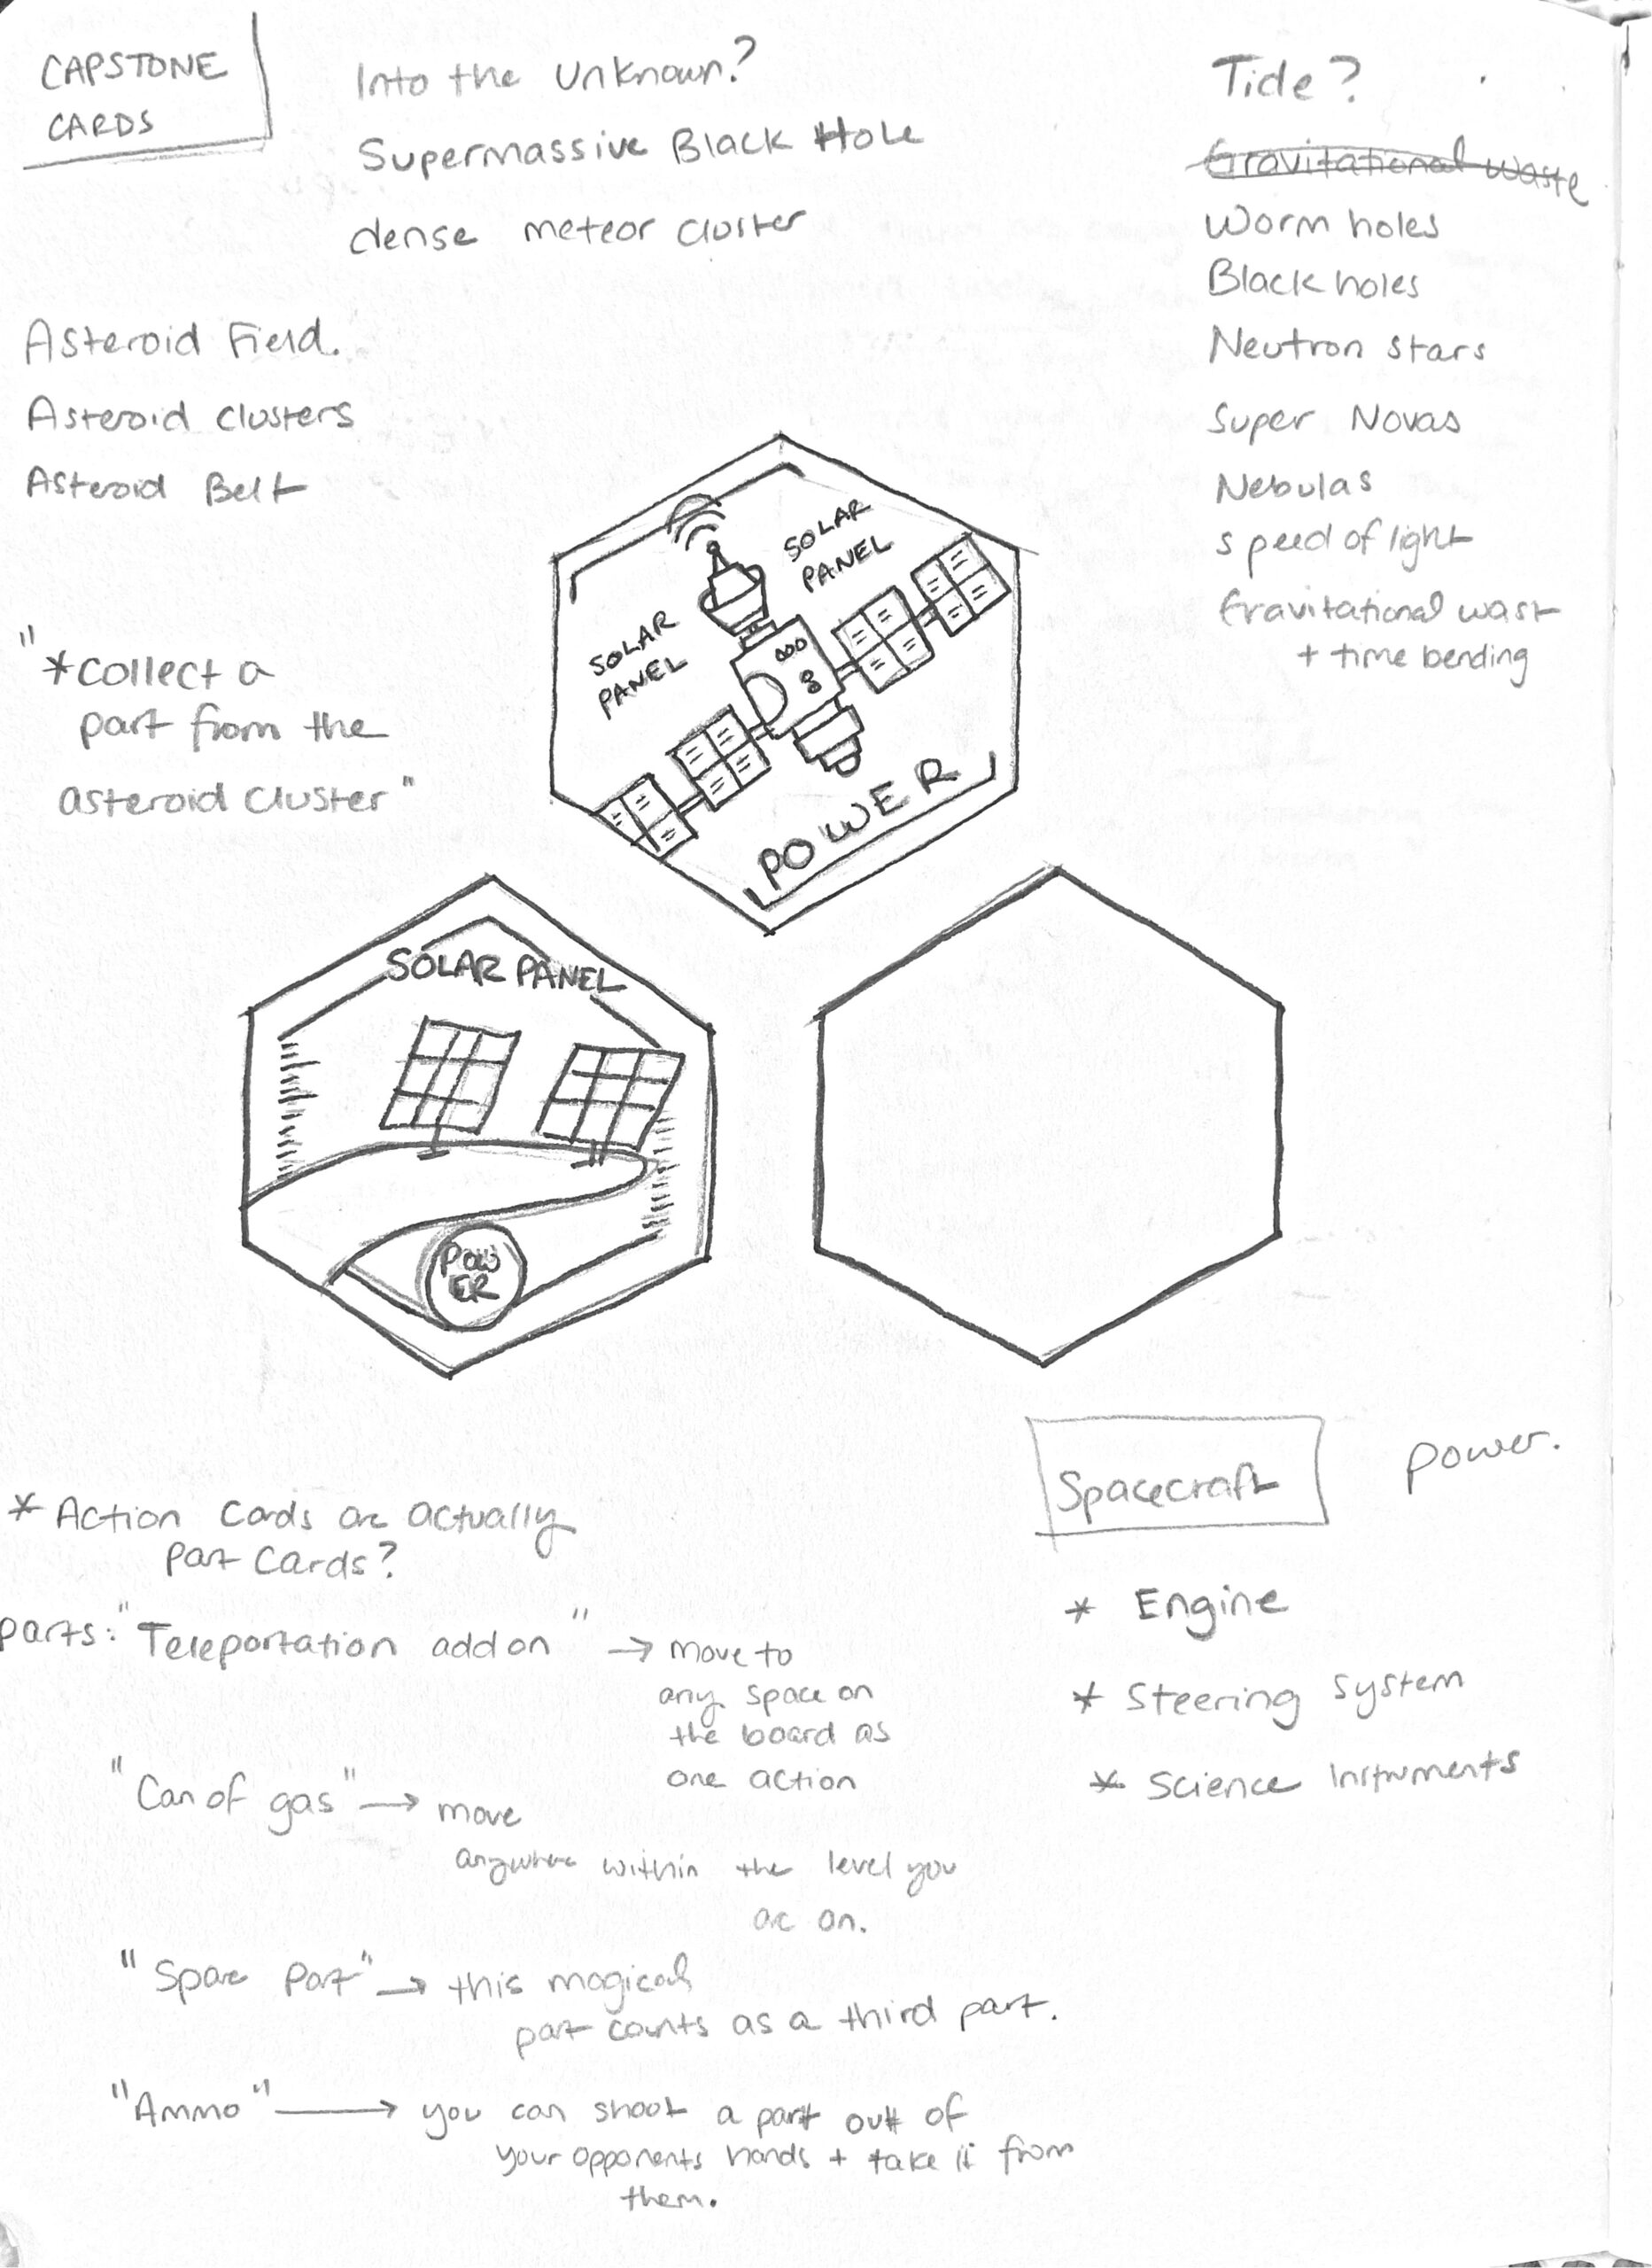 CAPSTONE
CARDS
Into the Unknown?
Supermassive Black Hole
dense meteor cluster
Tide?
Gravitational waste
Worm holes
Black holes
Neutron stars
Super Novas
Nebulas
speed of light
Gravitational wast
+ time bending
Asteroid Field.
Asteroid clusters
Asteroid Belt
"*collect a
part from the
asteroid cluster"
SOLAR
PANEL
SOLAR
PANEL
POWER
SOLAR PANEL
POW
ER
Spacecraft
power.
* Engine
* Steering system
* Science Instruments
* Action Cards are actually
Part Cards?
parts: "Teleportation add on" → move to
any space on
the board as
one action
"Can of gas" → move
anywhere within the level you
are on.
"Spare Part" → this magical
part counts as a third part.
"Ammo" → you can shoot a part out of
your opponents hands + take it from
them.